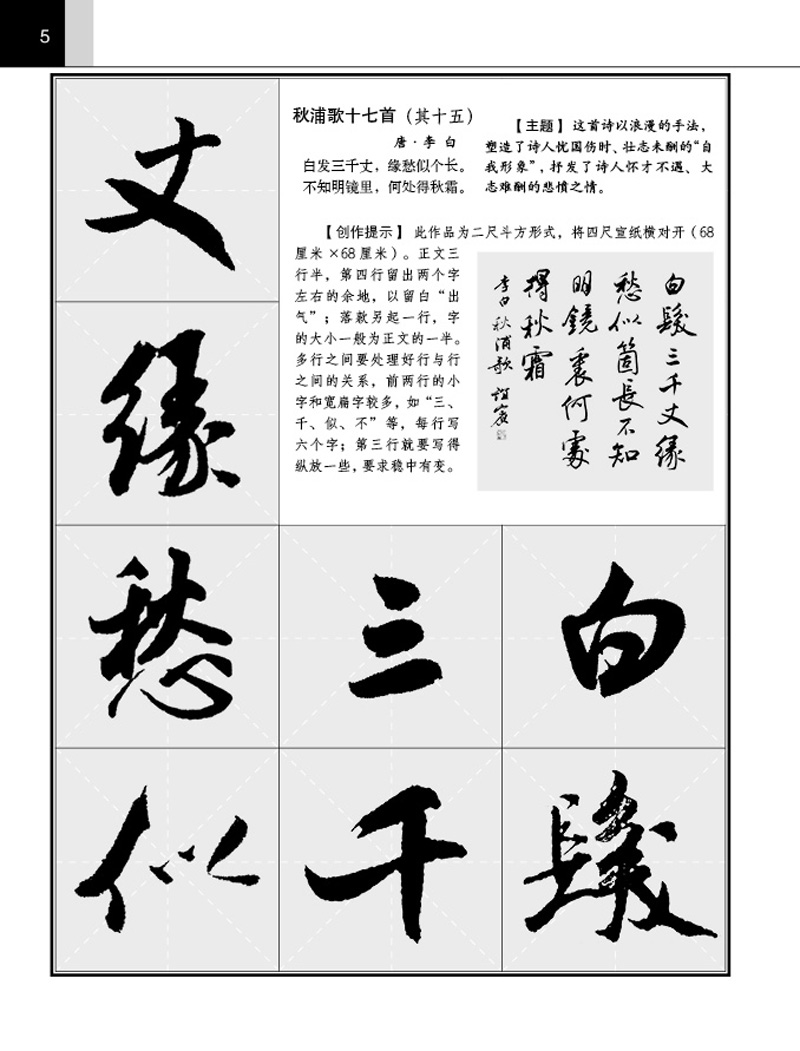 5
秋浦歌十七首（其十五）
唐·李 白
白发三千丈，缘愁似个长。
不知明镜里，何处得秋霜。
【主题】 这首诗以浪漫的手法，
塑造了诗人忧国伤时、壮志未酬的“自
我形象”，抒发了诗人怀才不遇、大
志难酬的悲愤之情。
【创作提示】 此作品为二尺斗方形式，将四尺宣纸横对开（68
厘米×68厘米）。正文三
行半，第四行留出两个字
左右的余地，以留白“出
气”；落款另起一行，字
的大小一般为正文的一半。
多行之间要处理好行与行
之间的关系，前两行的小
字和宽扁字较多，如“三、
千、似、不”等，每行写
六个字；第三行就要写得
纵放一些，要求稳中有变。
白髮三千丈緣
愁似箇長不知
明鏡裏何處
得秋霜
李白秋浦歌
白髮
三千
丈緣愁似